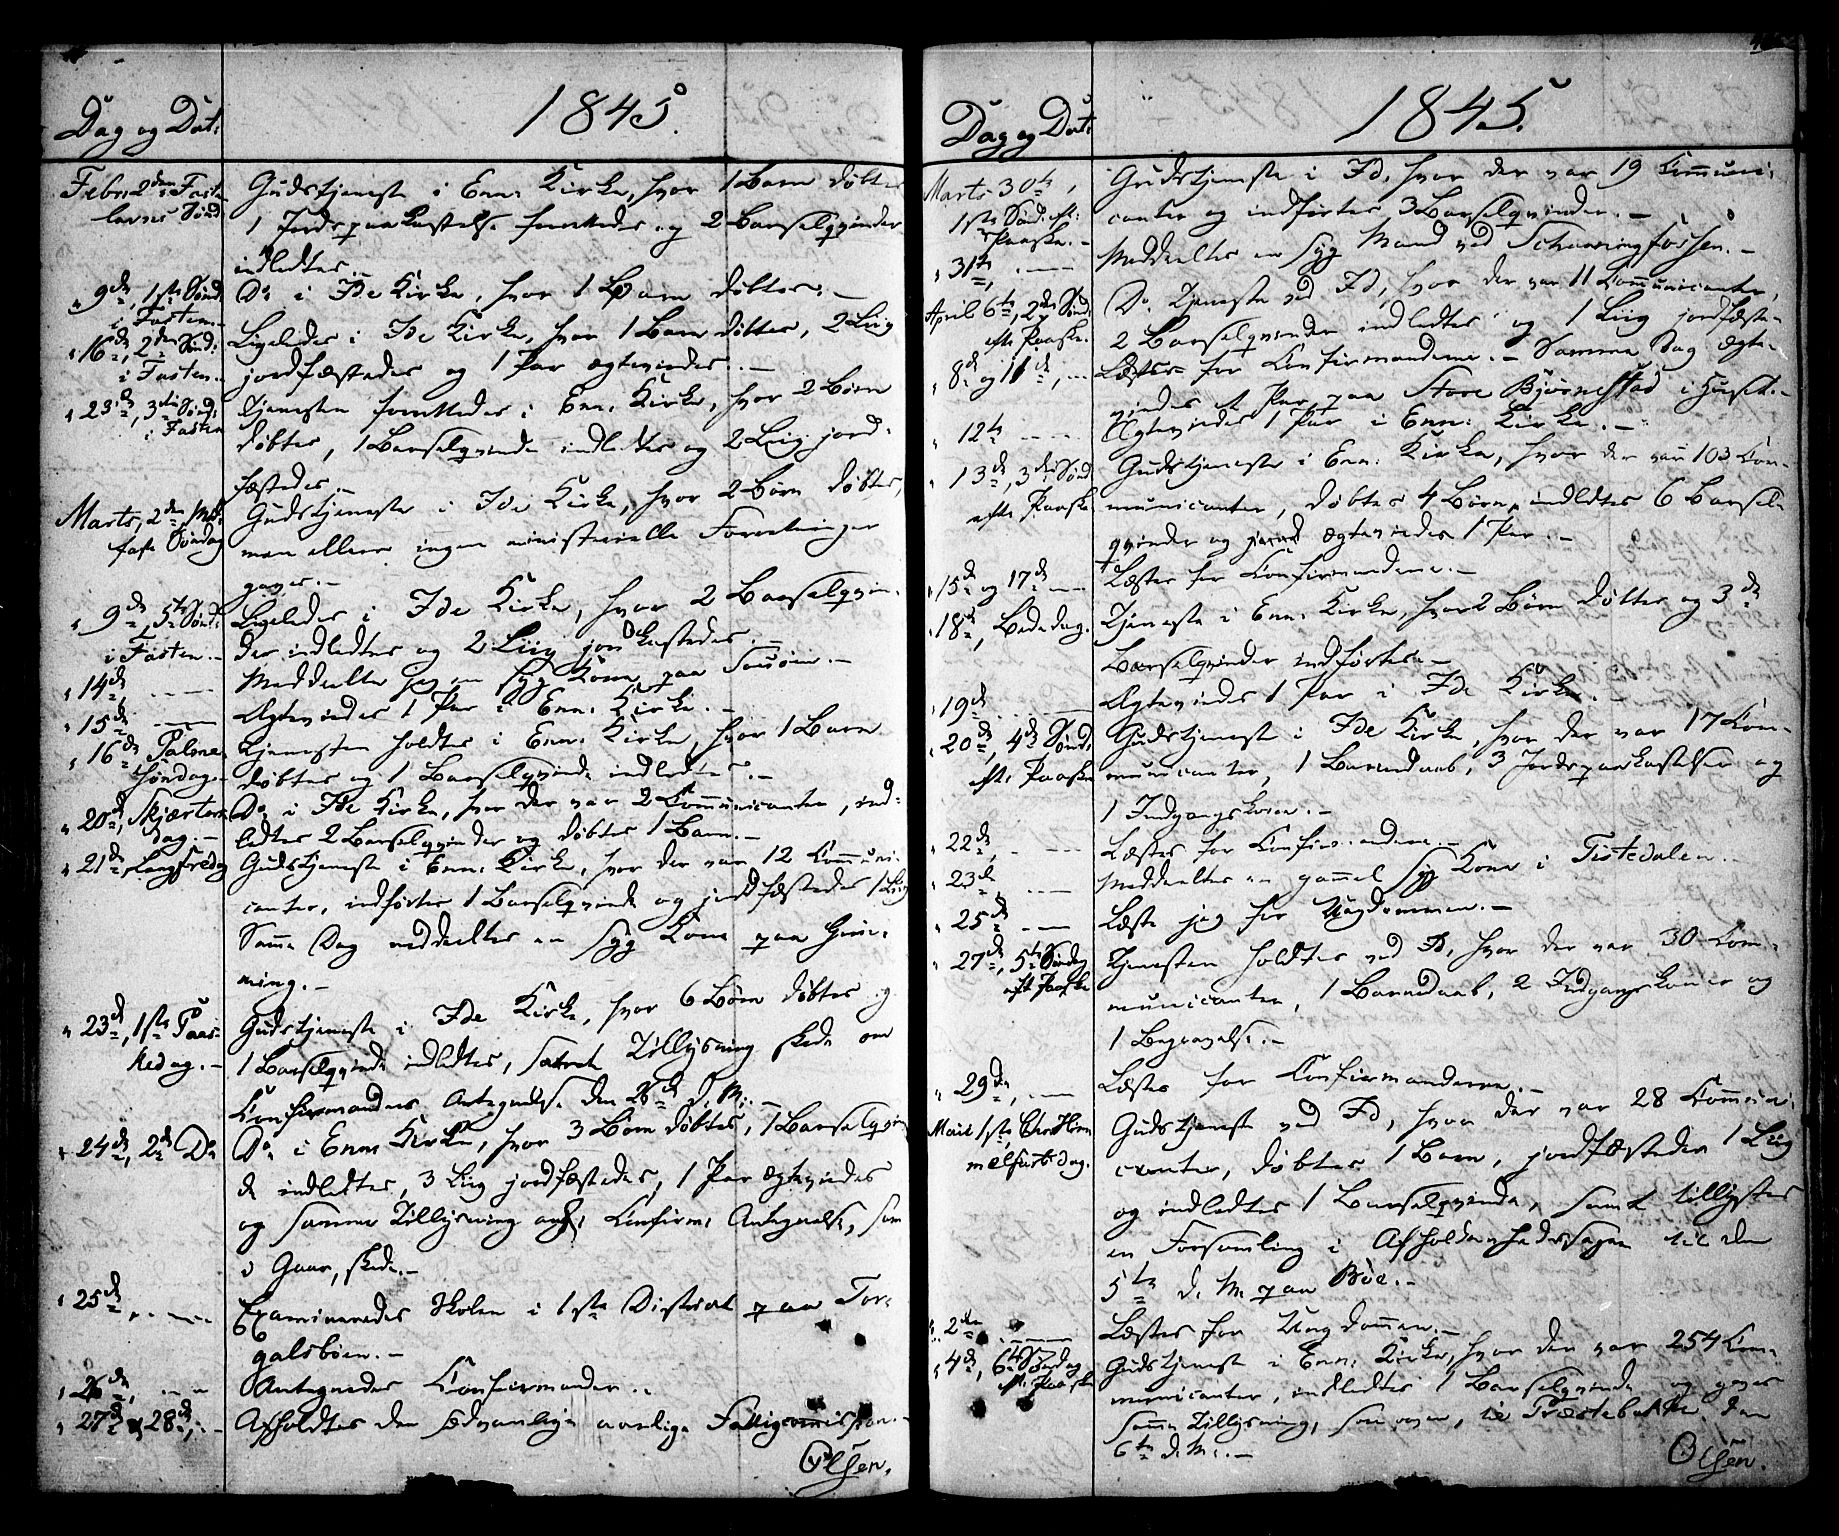 Dag og Dat:
1845.
Febr. 2den Faste
lavns Sønd:
Gudstjeneste i Enn: Kirke, hvor 1 Barn døbtes
1 Jordspaakastelse forrettedes og 2 Barselqvinder
indledtes.
" 9de, 1ste Sønd:
i Fasten.
Do i Ide Kirke, hvor 1 Barn døbtes. —
" 16de, 2den Sønd:
i Fasten.
Ligeledes i Ide Kirke, hvor 1 Barn døbtes, 2 Liig
jordfæstedes og 1 Par ægteviedes. —
" 23de, 3die Sønd:
i Fasten
Tjenesten forrettedes i Enn: Kirke, hvor 2 Børn
døbtes, 1 Barselqvinde indledtes og 2 Liig jord-
fæstedes. —
Marts, 2den Mid-
faste Søndag
Gudstjeneste i Ide Kirke, hvor 2 Børn døbtes,
men ellers ingen ministerielle Forretninger
gaves. —
" 9de, 5te Sønd:
i Fasten. —
Ligeledes i Ide Kirke, hvor 2 Barselqvin-
der indledtes og 2 Liig jordkastedes. —
" 14de, ——
Meddeelte jeg en syg Kone paa —
" 15de ——
Ægteviedes 1 Par i Enn: Kirke. —
" 16de Palme
Søndag. —
Tjenesten holdtes i Enn: Kirke, hvor 1 Barn
døbtes og 1 Barselqvinde indledtes. —
" 20de, Skjærtors
dag. —
Do i Ide Kirke, hvor der var 2 Communicanter, ind-
ledtes 2 Barselqvinder og døbtes 1 Barn. —
" 21de, Langfredag
Gudstjeneste i Enn: Kirke, hvor der var 12 Communi-
canter, indførtes 1 Barselqvinde og jordfæstedes 1 Liig
Samme Dag meddeeltes en syg Kone paa Grim-
ming. —
" 23de, 1ste Paas-
kedag. —
Gudstjeneste i Ide Kirke, hvor 6 Børn døbtes og
1 Barselqvinde indledtes, samt Tillysning skede om
Confirmanders Antegnelse den 26de d. M. —
" 24de, 2den Do
Do i Enn: Kirke, hvor 3 Børn døbtes, 1 Barselqvin
de indledtes, 3 Liig jordfæstedes, 1 Par ægteviedes
og samme Tillysning ang: Confirm: Antegnelse, som
i Gaar, skede. —
" 25de, ——
Examineredes Skolen i 1ste District paa Tor-
galsbøen. —
" 26de, — —
Antegnedes Confirmander. —
" 27de & 28de, —
Afholdtes den sædvanlige aarlige Fattigcommission. —
Olsen.
Dag og Dat:
1845.
Marts 30te,
1ste Sønd. eft:
Paaske. —
Gudstjeneste i Id, hvor der var 19 Communi-
canter og indførtes 3 Barselqvinder. —
" 31te, ——
Meddeeltes en syg Mand ved Schaaningfossen. —
April 6te, 2den Sønd:
efter Paaske.
Do Tjeneste ved Id, hvor der var 11 Communicanter,
2 Barselqvinder indledtes og 1 Liig jordfæste-
" 8de og 11de, —
Læstes for Confirmanderne. — Samme Dag ægte-
viedes et Par paa Store Bjørnestad i Huset. —
" 12te ——
Ægteviedes 1 Par i Enn: Kirke. —
" 13de, 3die Sønd
efter Paaske
Gudstjeneste i Enn: Kirke, hvor der var 103 Com-
municanter, døbtes 4 Børn, indledtes 6 Barsel-
qvinder og ægteviedes 1 Par. —
" 15de og 17de —
Læstes for Confirmanderne. —
" 18de, Bededag.
Tjeneste i Enn: Kirke, hvor 2 Børn døbtes og 3de
Barselqvinder indførtes. —
" 19de ——
Ægteviedes 1 Par i Ide Kirke. —
" 20de, 4de Sønd:
eft: Paaske
Gudstjeneste i Ide Kirke, hvor der var 17 Com-
municanter, 1 Barnedaab, 3 Jordspaakastelser og
1 Indgangskone. —
" 22de, ——
Læstes for Confirmanderne. —
" 23de, ——
Meddeeltes en gammel syg Kone i Tistedalen. —
" 25de ——
Læste jeg for Ungdommen. —
" 27de, 5te Søndag
eft: Paaske
Tjenesten holdtes ved Id, hvor der var 30 Com-
municanter, 1 Barnedaab, 2 Indgangskoner og
1 Begravelse. —
" 29de, ——
Læstes for Confirmanderne. —
Mai 1ste, Chr: Him
melfartsdag.
Gudstjeneste ved Id, hvor der var 28 Communi-
canter, døbtes 1 Barn, jordfæstedes 1 Liig
og indledtes 1 Barselqvinde, samt tillystes
en Forsamling i Afholdenhedssagen til den
5te d. M. paa Böe. —
" 2den ——
Læstes for Ungdommen. —
" 4de, 6te Søndag
eft: Paaske
Gudstjeneste i Enn: Kirke, hvor der var 254 Com-
municanter, indledtes 1 Barselqvinde og gaves
samme Tillysning, som ovenfor, til Præstebakke den
6te d. M. —
Olsen.